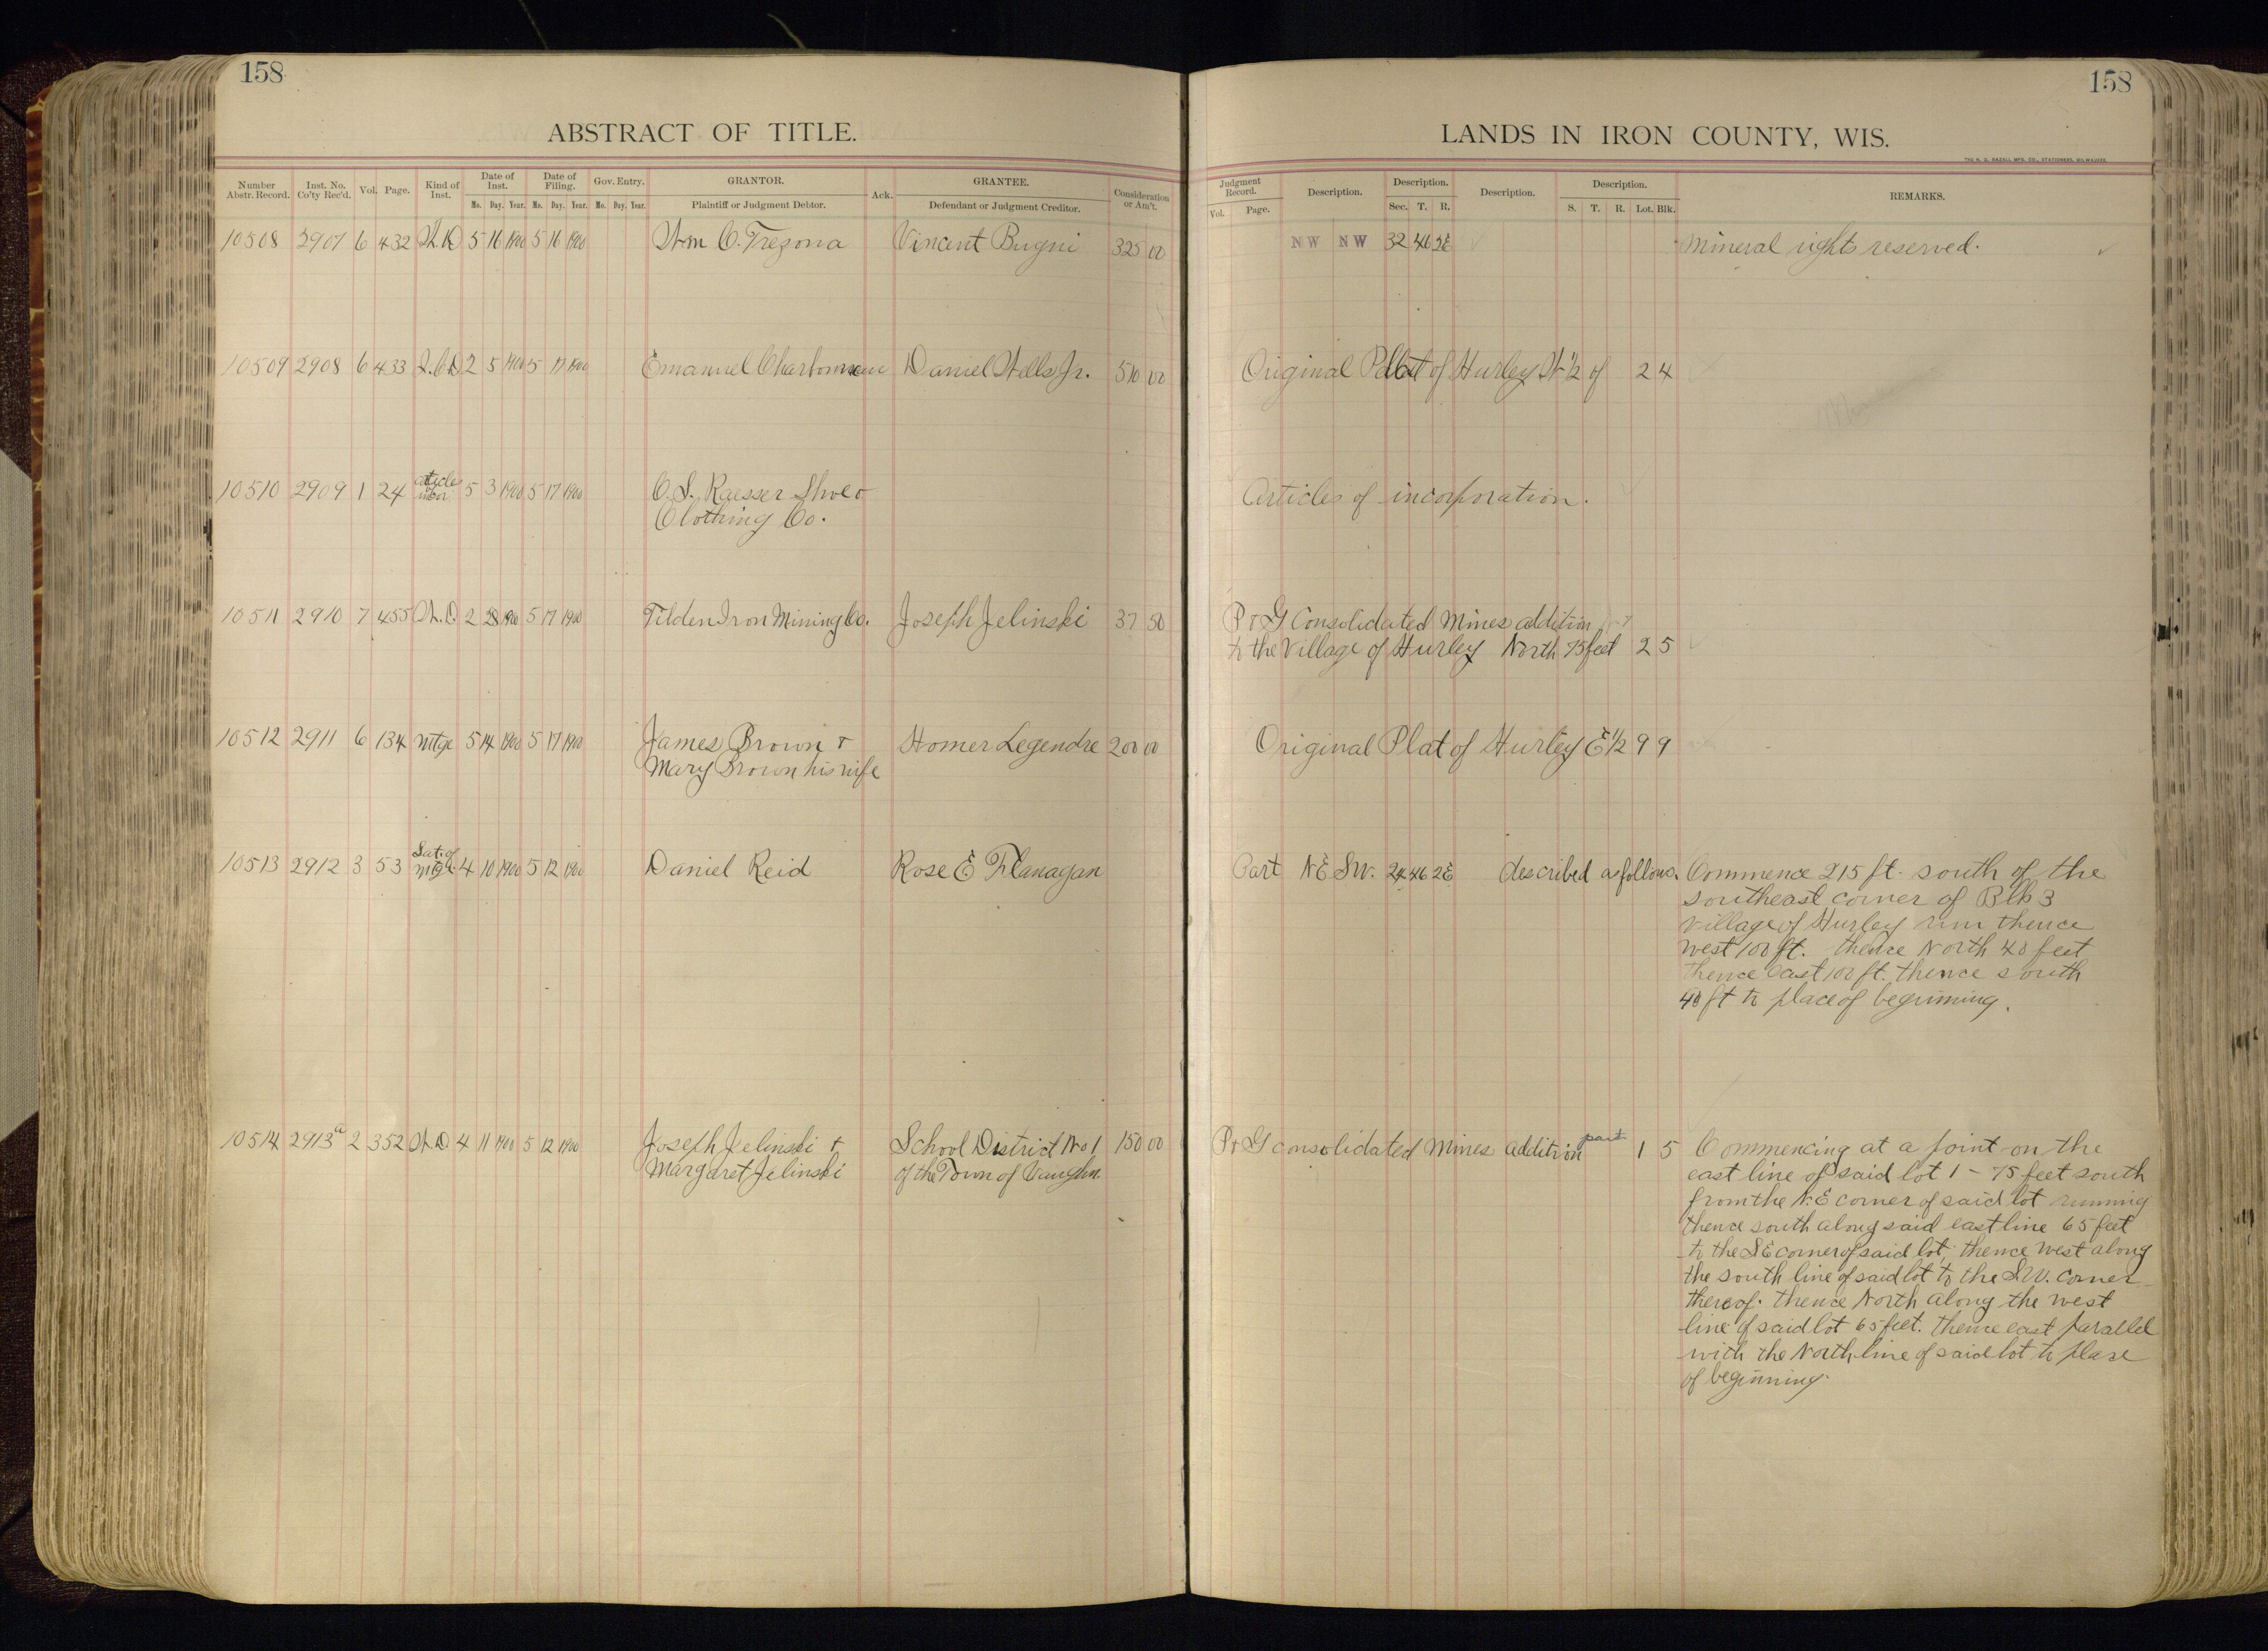 158
ABSTRACT OF TITLE.
Number Abstr. Record. Inst. No. Co'ty Rec'd. Vol. Page. Kind of Inst. Date of Inst. Date of Filing. Gov. Entry. GRANTOR. Ack. GRANTEE. Consideration or Am't.
Mo. Day. Year. Mo. Day. Year. Mo. Day. Year. Plaintiff or Judgment Debtor. Defendant or Judgment Creditor.
10508 2907 6 432 W.D 5 16 1900 5 16 1900 Wm C. Tregona Vincent Bugni 325 00
10509 2908 6 433 Q.C.D 2 5 1900 5 17 1900 Emanuel Charbonneau Daniel Wells Jr. 510 00
10510 2909 1 24 articles incor 5 3 1900 5 17 1900 C. S. Raesser Shoe &
Clothing Co.
10511 2910 7 455 W.D. 2 28 1900 5 17 1900 Tilden Iron Mining Co. Joseph Jelinski 37 50
10512 2911 6 134 Mtge 5 14 1900 5 17 1900 James Brown & Homer Legendre 200 00
Mary Brown his wife
10513 2912 3 53 Sat. of Mtge 4 10 1900 5 12 1900 Daniel Reid Rose E Flanagan
10514 2913a 2 352 W.D 4 11 1900 5 12 1900 Joseph Jelinski & School District No 1 150 00
Margaret Jelinski of the Town of Vaughn.
158
LANDS IN IRON COUNTY, WIS.
THE H. G. RAZALL MFG. CO., STATIONERS, MILWAUKEE.
Judgment Record. Description. Description. Description. Description. REMARKS.
Vol. Page. Sec. T. R. S. T. R. Lot. Blk.
NW NW 32 46 2E Mineral rights reserved.
Original Plat of Hurley W 1/2 of 2 4
Articles of incorporation.
P & G Consolidated Mines addition
to the Village of Hurley North 75 feet 2 5
Original Plat of Hurley E 1/2 9 9
Part NE SW. 24 46 2E described as follows. Commence 215 ft. south of the
southeast corner of Blk 3
Village of Hurley run thence
West 100 ft. thence North 40 feet
thence east 100 ft. thence south
40 ft to place of beginning.
P & G consolidated Mines addition part 1 5 Commencing at a point on the
east line of said lot 1 - 75 feet south
from the N.E corner of said lot running
thence south along said east line 65 feet
to the SE corner of said lot. thence West along
the south line of said lot to the S.W. corner
thereof. thence North along the west
line of said lot 65 feet. thence east parallel
with the North line of said lot to place
of beginning.